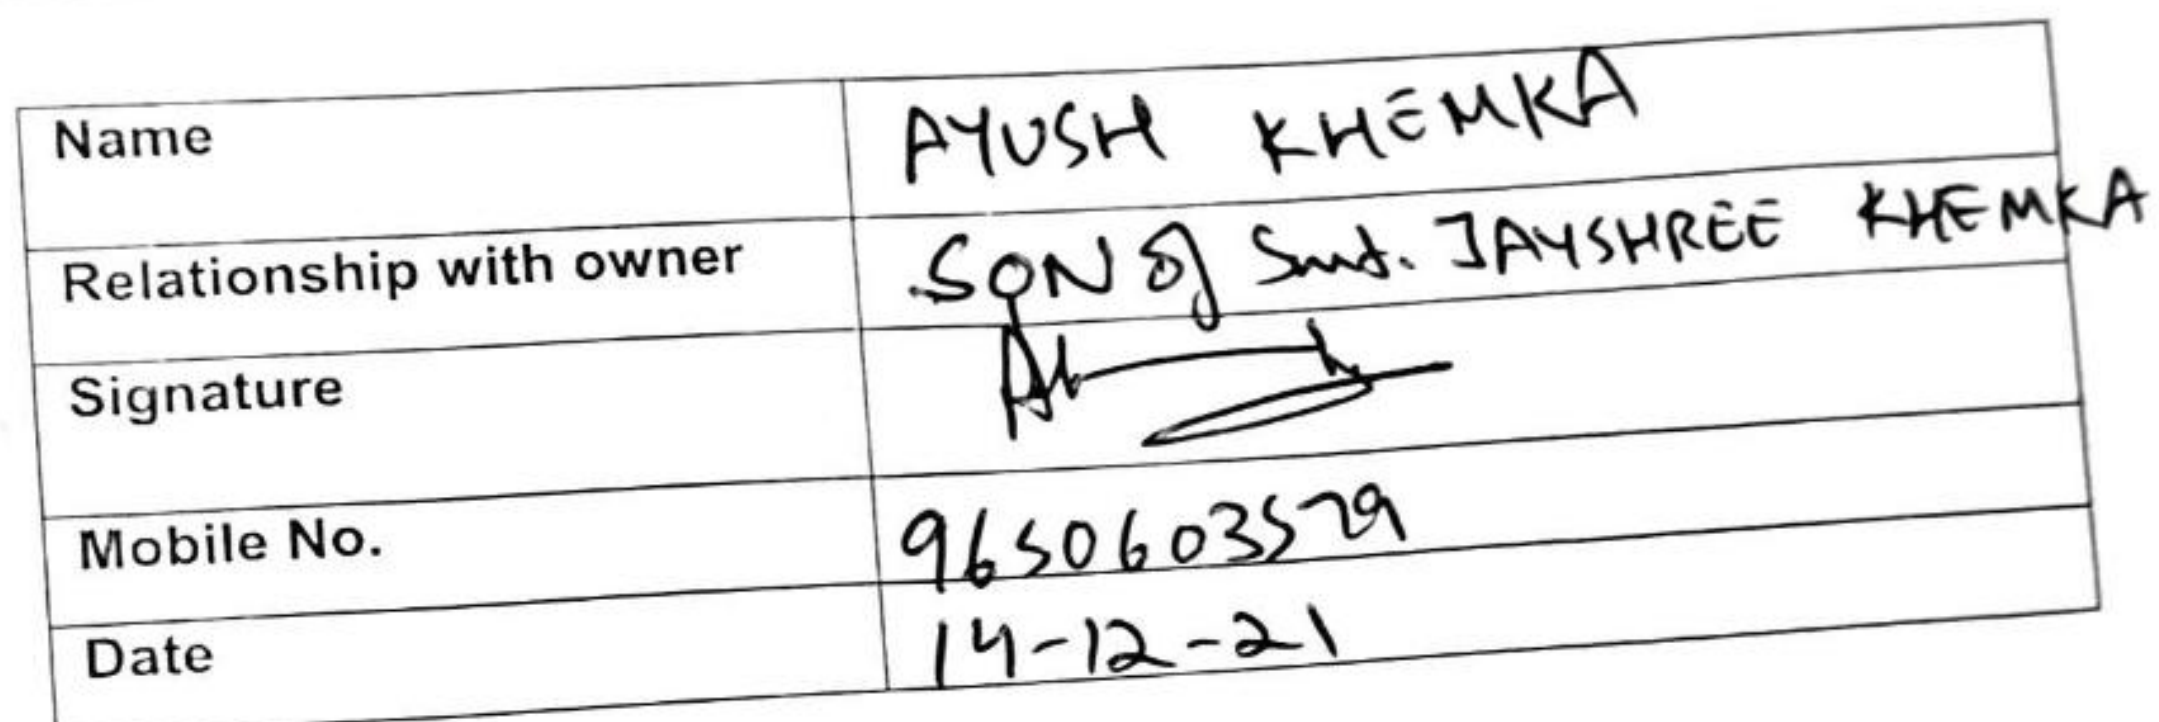 Name AYUSH KHEMKA
Relationship with owner SON of Smt. JAYSHREE KHEMKA
Signature
Mobile No. 9650603579
Date 14-12-21